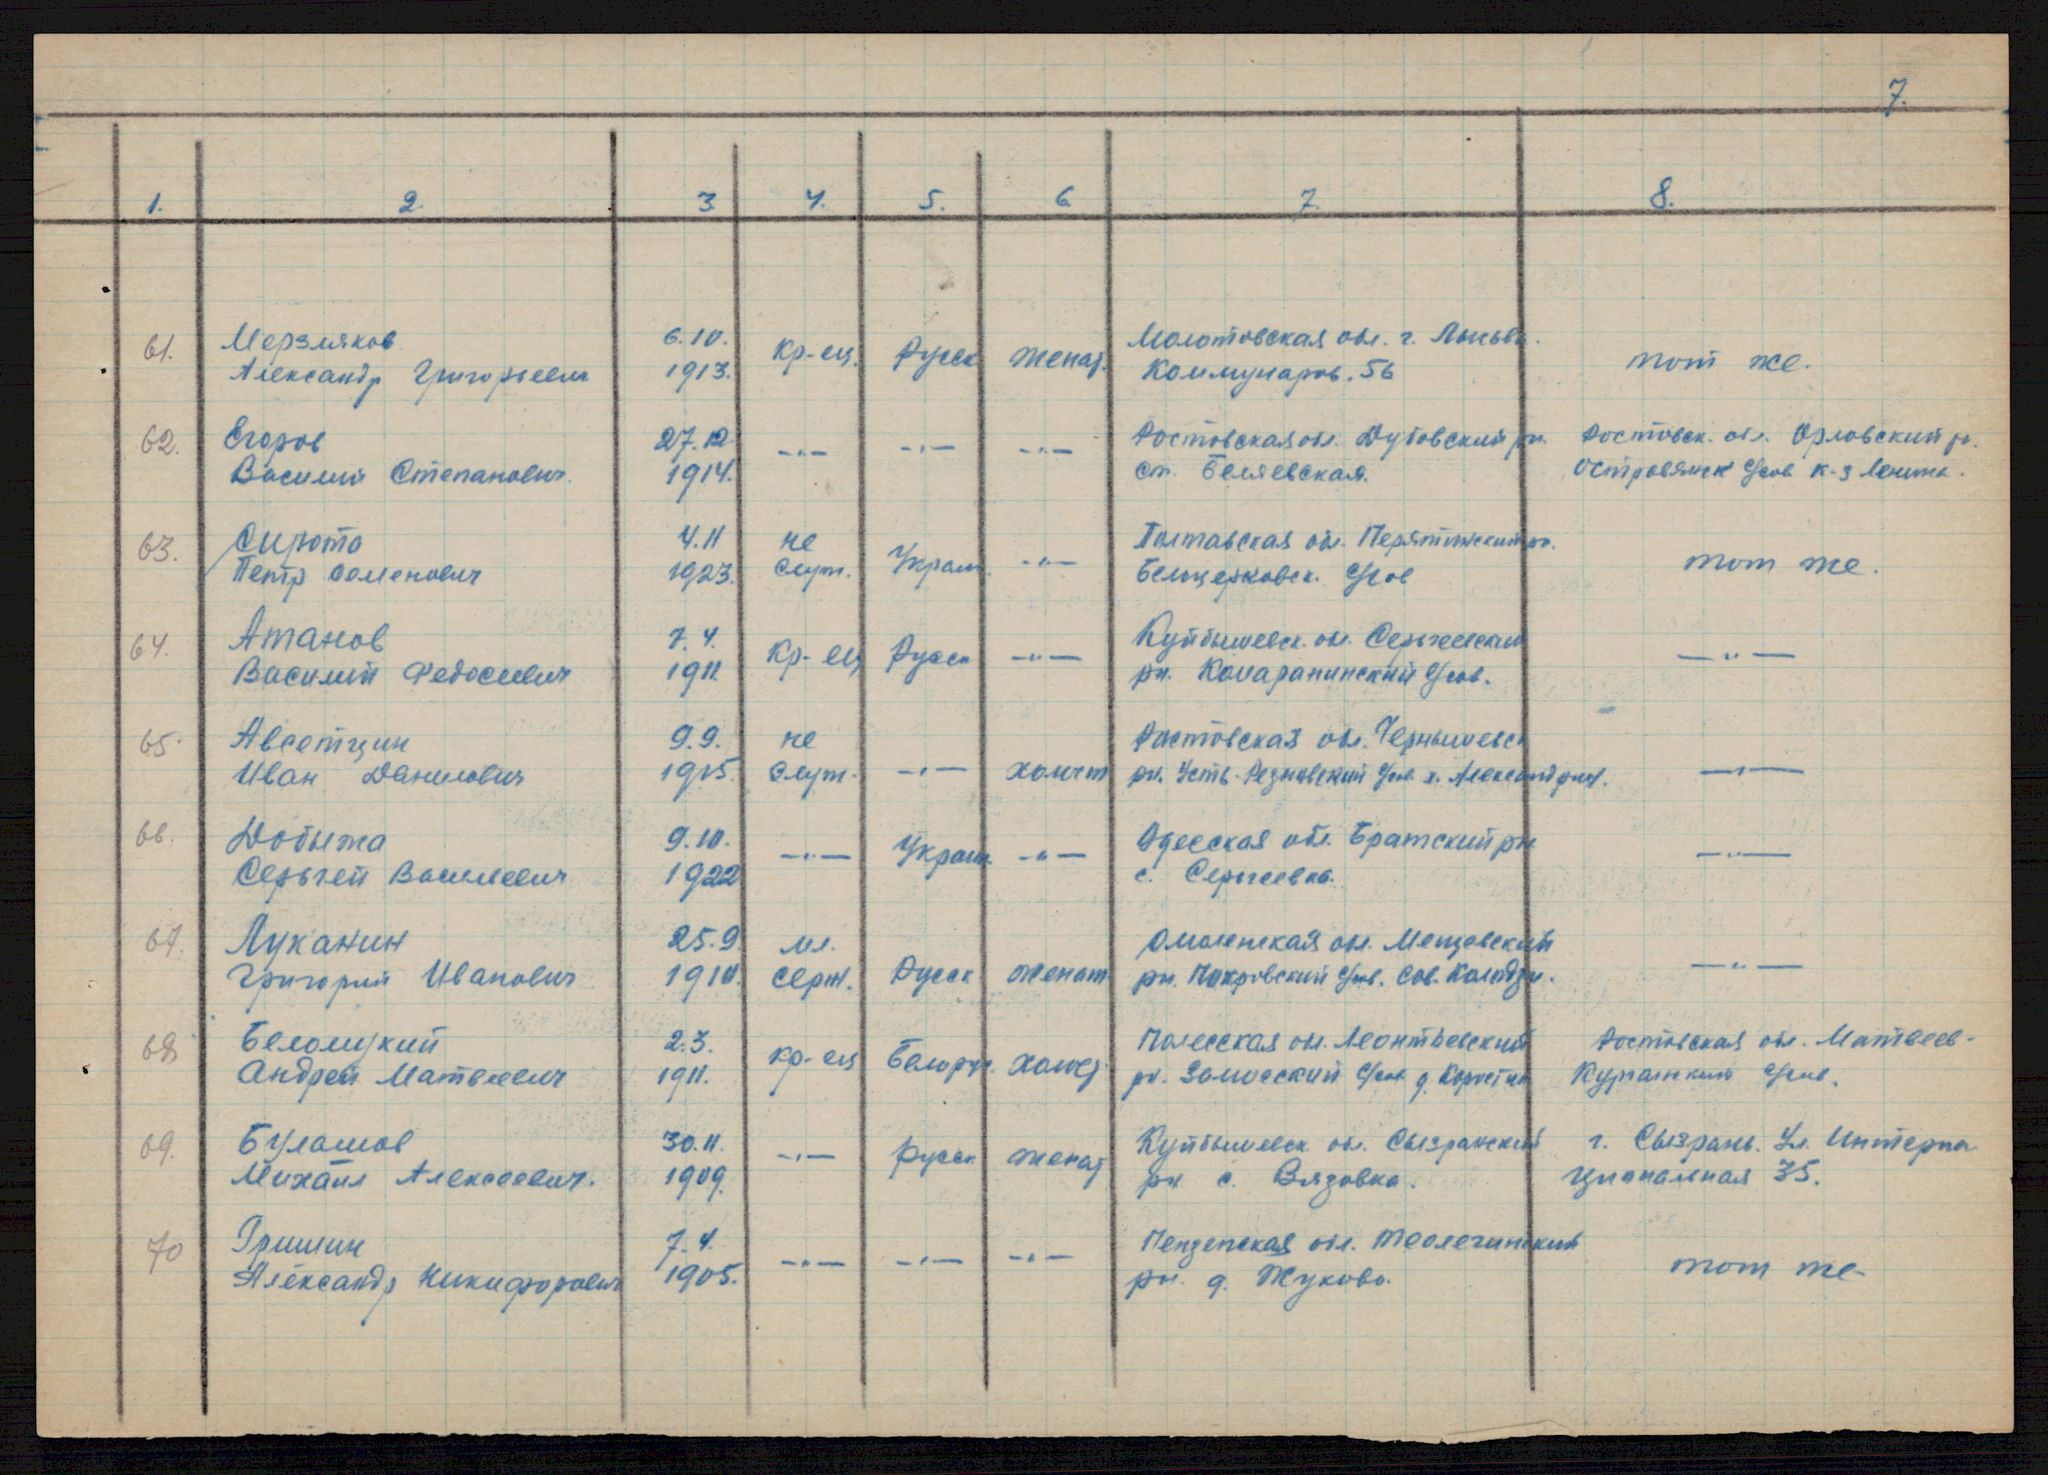 7.
1. 2. 3. 4. 5. 6 7. 8.
61. Мерзляков 6.10. Кр-ец. Русск женат. Молотовская обл. г. Лысьва. тот же.
Александр Григорьевич 1913. Коммунаров. 56
62. Егоров 27.12 —"— —"— —"— Ростовская обл. Дубовский рн. Ростовск. обл. Орловский р.
Василий Степанович. 1914. ст. Беляевская. Островянск с/сов к-з Ленина.
63. Сирота 4.11 не Украин —"— Полтавская обл. Перятинский рн. тот же.
Петр Семенович 1923. служ. Белоцерковск. с/сов
64. Атанов 7.4. Кр-ец Русск —"— Куйбышевск. обл. Сергиевский —"—
Василий Федосеевич 1911 рн. с/сов.
65. Авсетцин 9.9. не —"— холост Ростовская обл. Чернышевск —"—
Иван Данилович 1915. служ. рн. Усть- с/сов. х.
66. Добыжа 9.10. —"— Украин. —"— Одесская обл. Братский рн. —"—
Сергей Васильевич 1922 с. Сергеевка.
67. Луканин 25.9 мл. Русск женат Смоленская обл. Мещовский —"—
Григорий Иванович 1910. серж. рн. Покровский с/сов. Сов.
68 Белолуцкий 2.3. кр-ец Белорус. холост Полесская обл. Ростовская обл. Матвеев-
Андрей Матвеевич 1911. рн. с/сов д. Курганский с/сов.
69. Булашов 30.11. —"— русск женат Куйбышевск обл. Сызранский г. Сызрань. Ул. Интерна
Михаил Алексеевич. 1909. рн с. Вязовка. циональная 35.
70 Гришин 7.4. —"— —"— —"— Пензенская обл. рн. тот же
Александр Никифорович 1905. рн. д. Жуково.